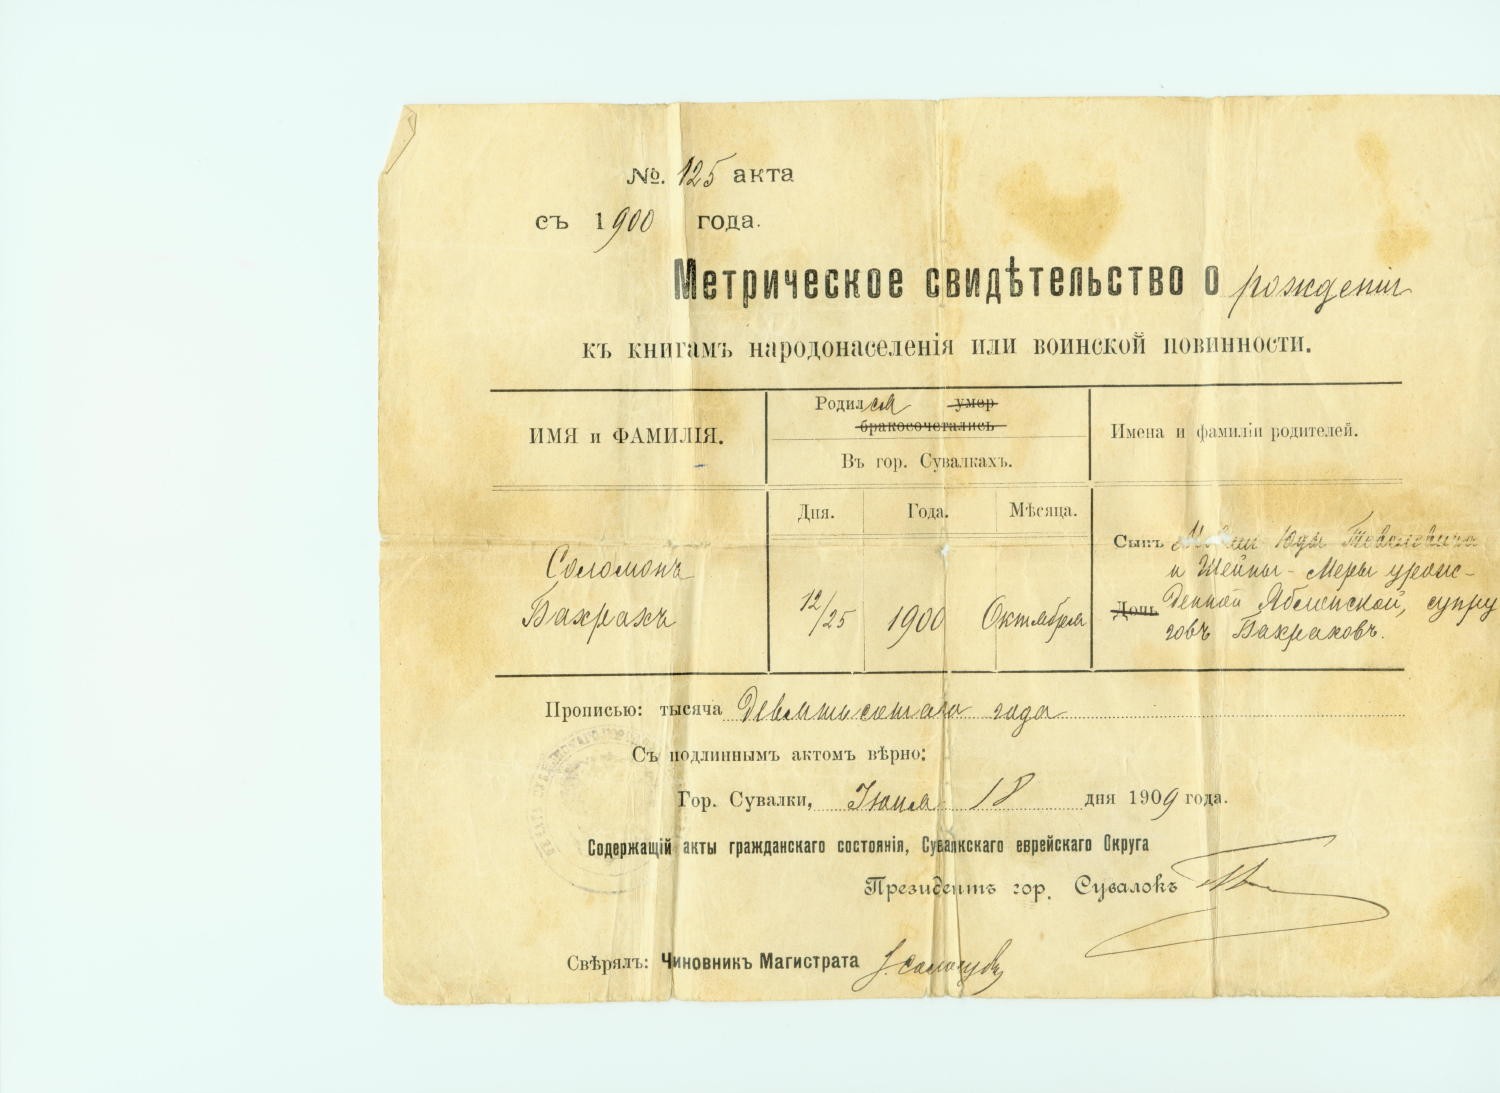 №. 125 акта
съ 1900 года.
Метрическое свидѣтельство о рожденіи
къ книгамъ народонаселенія или воинской повинности.
ИМЯ и ФАМИЛІЯ.
Родился умер
бракосочетались
Въ гор. Сувалкахъ.
Имена и фамиліи родителей.
Дня. Года. Мѣсяца.
Соломонъ
Бахрахъ
12/25 1900 Октября
Сынъ Юды
и Шейны-Меры урож-
Дочь денной Яблонской, супру
говъ Бахраховъ.
Прописью: тысяча девятисотаго года
Съ подлиннымъ актомъ вѣрно:
Гор. Сувалки, 18 дня 1909 года.
Содержащій акты гражданскаго состоянія, Сувалкскаго еврейскаго Округа
Президентъ гор. Сувалокъ
Свѣрялъ: Чиновникъ Магистрата